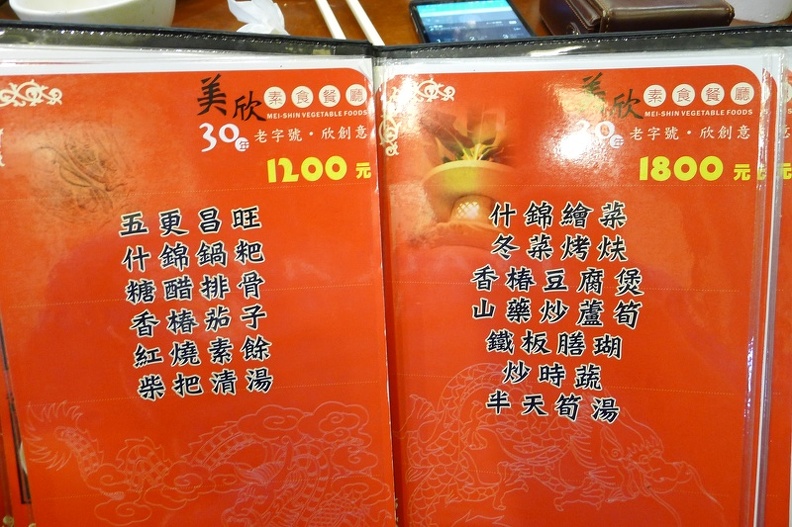 美欣素食餐廳
MEI-SHIN VEGETABLE FOODS
30年 老字號・欣創意
1200元
五更昌旺
什錦鍋粑
糖醋排骨
香椿茄子
紅燒素餘
柴把清湯
美欣素食餐廳
MEI-SHIN VEGETABLE FOODS
30年 老字號・欣創意
1800元
什錦繪菜
冬菜烤炔
香椿豆腐煲
山藥炒蘆筍
鐵板膳瑚
炒時蔬
半天筍湯